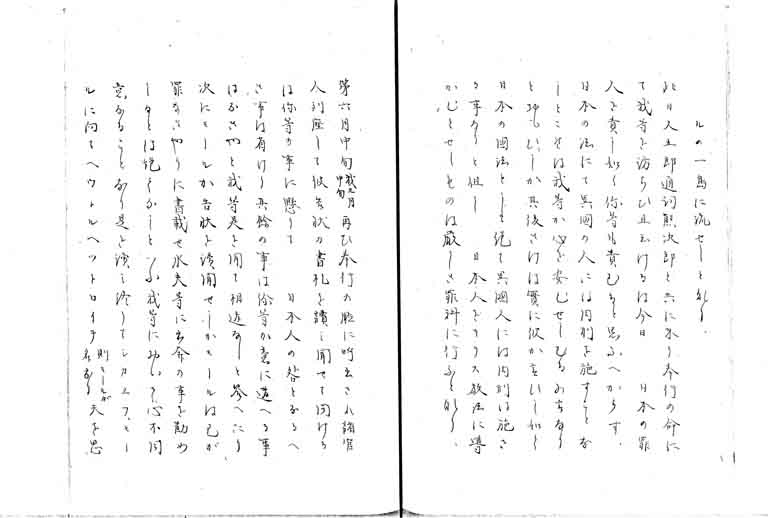 ルの一島に流せしと也.
此日人五郎通詞熊次郎と共に来り奉行の命に
て我等を訪らひ且云けるは今日 日本の罪
人を責し如く你等も責むると思ふへからす.
日本の法にて異國の人には肉刑を施すことな
しとこ は我等か心を安むせしむるみちなり
と しか其後 は實に彼か言いし如く
日本の國法として絶て異國人には肉刑は施さ
る事なりと但し 日本人をヲロス教法に導
かむとせしものは嚴しき罪科に行ふと也.
第六月中旬我五月中旬再ひ奉行の廳に呼出され諸官
人列座して彼告状の書札を讀し聞せて問ける
は你等の事に懸りて 日本人の咎となるへ
き事は有けり其餘の事は你等か意に違へる事
はなきやと我等是を聞て相違なしと答へたり
次にモールか告状を讀聞せしかモールは己か
罪なきやうに書載せ水夫等に出奔の事を勧め
しなとは絶てなかりしと 我等に て心不同
意なることなり是を演し終りてシカエフ、モー
ルに向てヘウトルヘツトロイチ則モールが名なり天を思